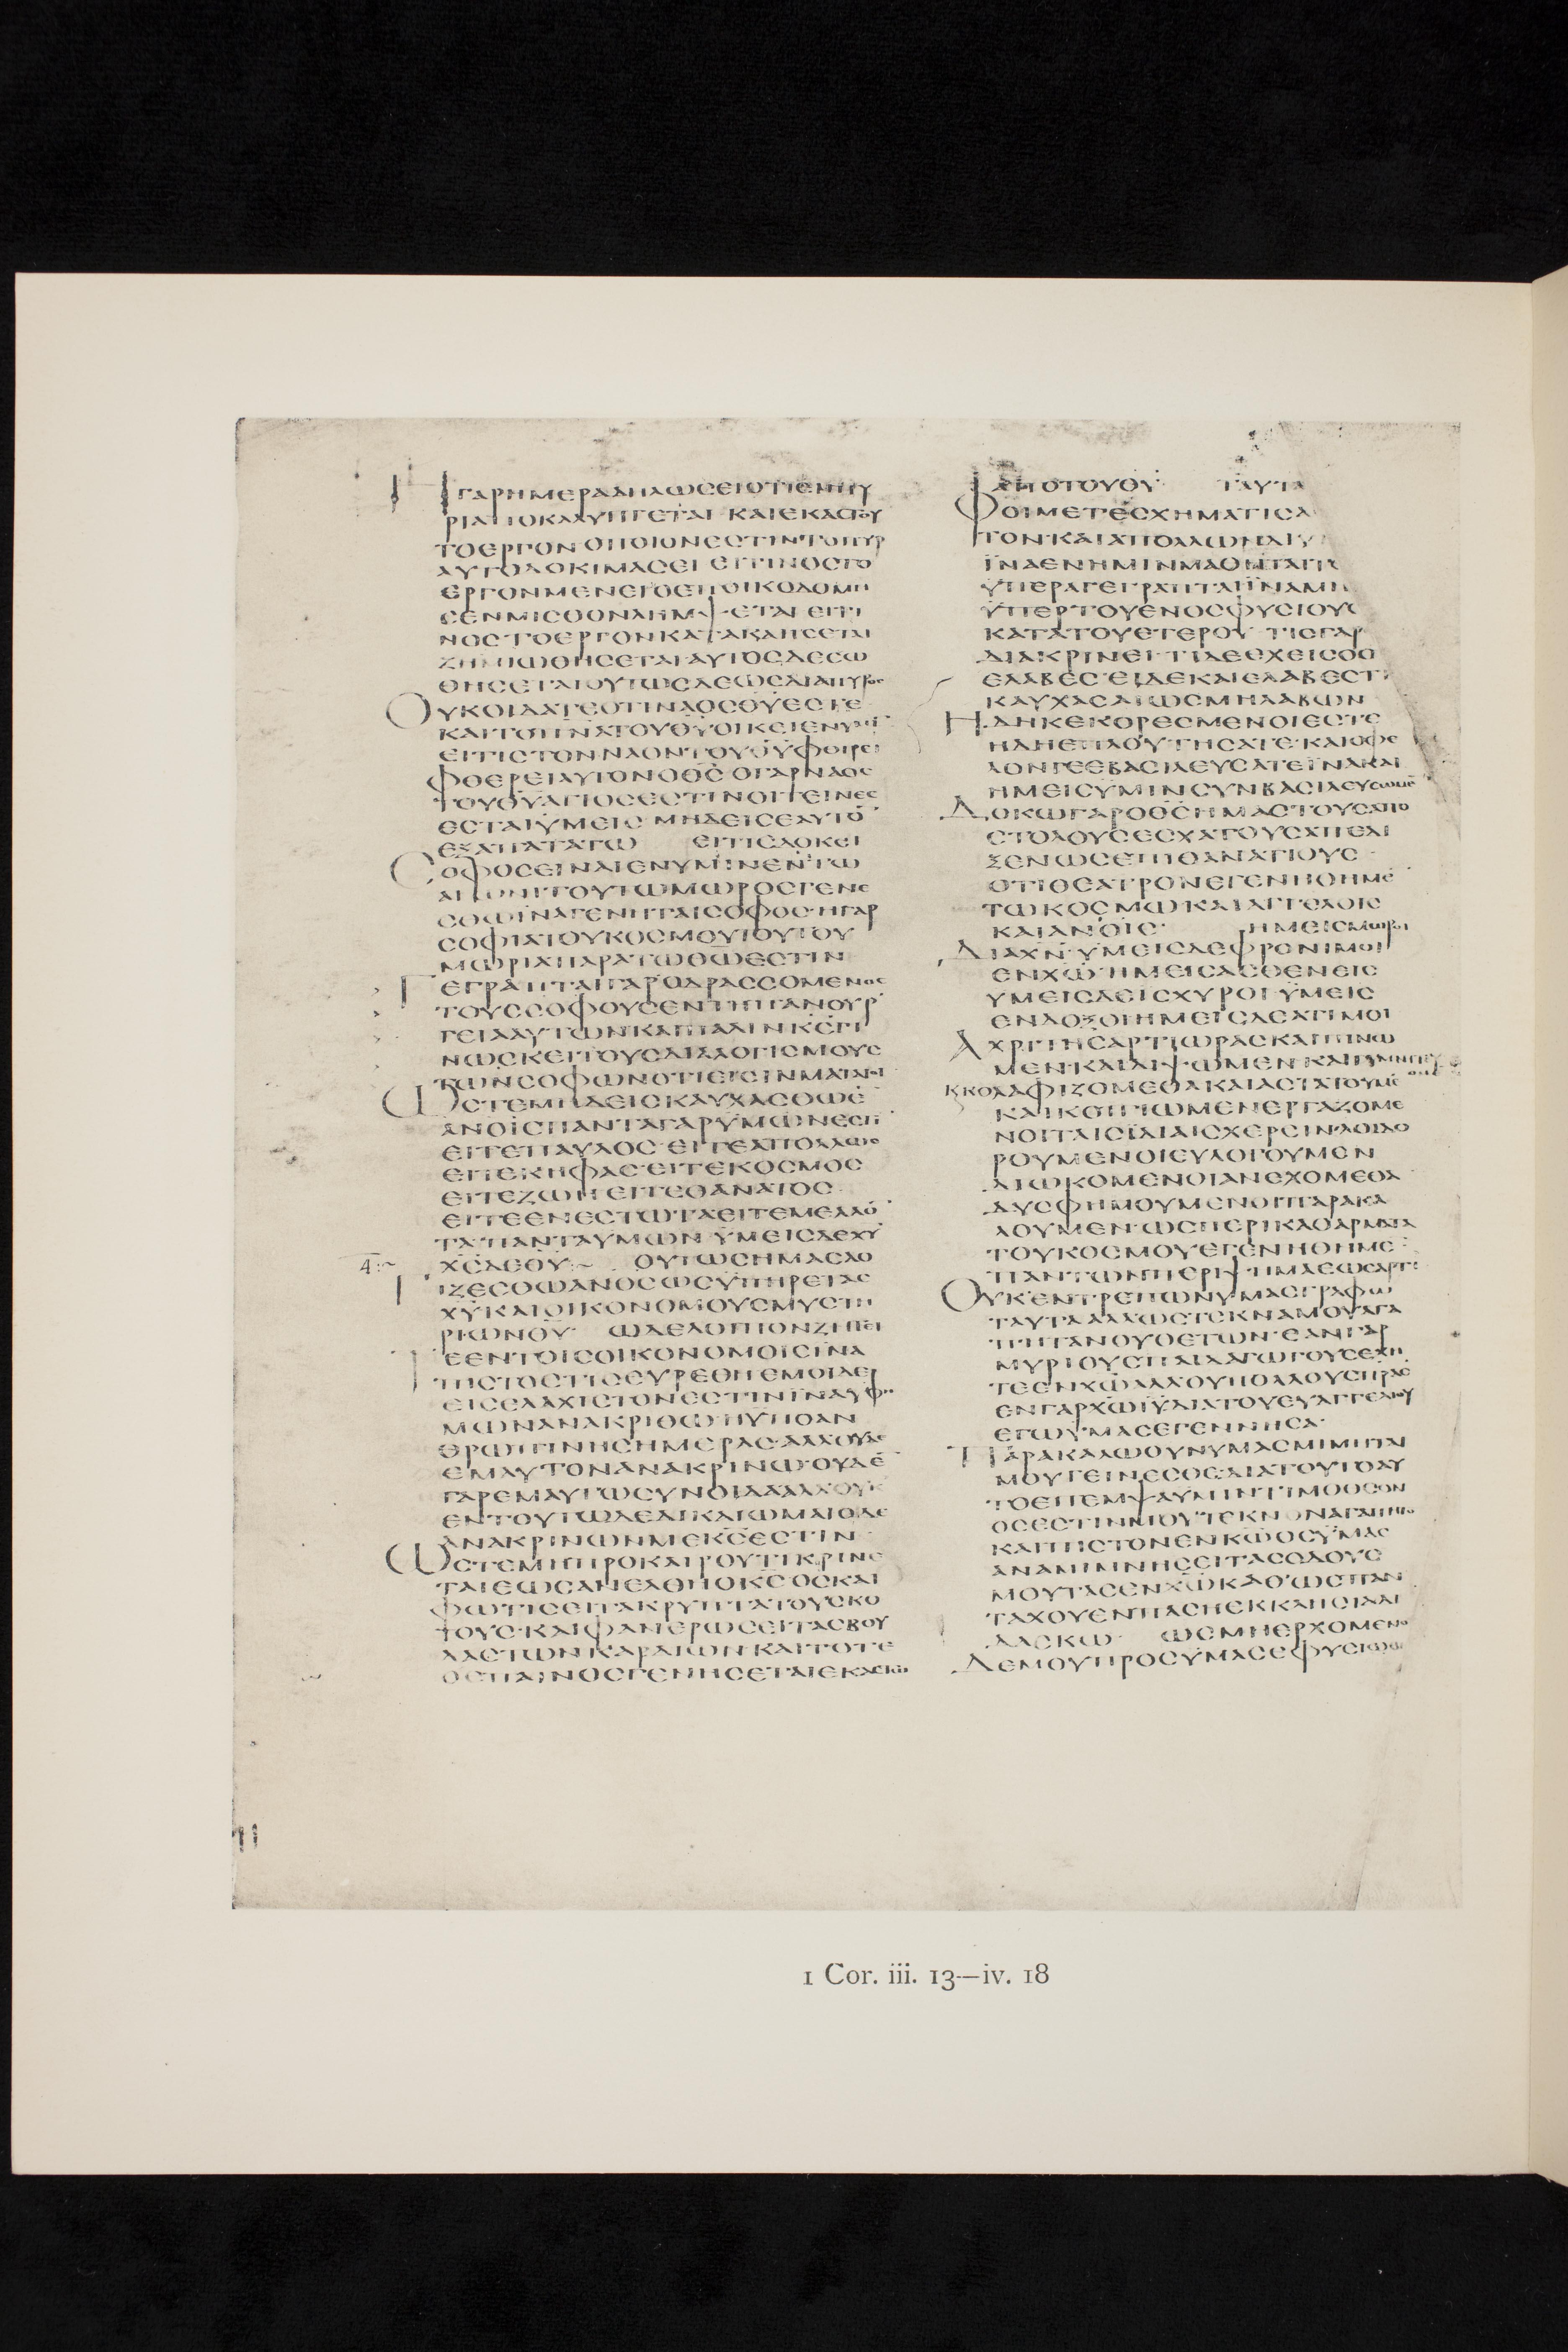 ΗΓΑΡΗΜΕΡΑΔΗΛΩCΕΙΟΤΙΕΝΠΥ
ΡΙΑΠΟΚΑΛΥΠΤΕΤΑΙ ΚΑΙΕΚΑCΤΟΥ
ΤΟΕΡΓΟΝΟΠΟΙΟΝΕCΤΙΝΤΟΠΥΡ
ΑΥΤΟΔΟΚΙΜΑCΕΙ ΕΙΤΙΝΟCΤΟ
ΕΡΓΟΝΜΕΝΕΙΟΕΠΟΙΚΟΔΟΜΗ
CΕΝΜΙCΘΟΝΛΗΜΨΕΤΑΙ ΕΙΤΙ
ΝΟCΤΟΕΡΓΟΝΚΑΤΑΚΑΗCΕΤΑΙ
ΖΗΜΙΩΘΗCΕΤΑΙ·ΑΥΤΟCΔΕCΩ
ΘΗCΕΤΑΙΟΥΤΩCΔΕΩCΔΙΑΠΥΡΟC
ΟΥΚΟΙΔΑΤΕΟΤΙΝΑΟCΘΥΕCΤΕ
ΚΑΙΤΟΠΝΑΤΟΥΘΥΟΙΚΕΙΕΝΥΜΙ
ΕΙΤΙCΤΟΝΝΑΟΝΤΟΥΘΥΦΘΙΡΕΙ
ΦΘΕΡΕΙΑΥΤΟΝΟΘC ΟΓΑΡΝΑΟC
ΤΟΥΘΥΑΓΙΟCΕCΤΙΝΟΙΤΕΙΝΕC
ΕCΤΑΙΫΜΕΙC ΜΗΔΕΙCΕΑΥΤΟ
ΕΞΑΠΑΤΑΤΩ ΕΙΤΙCΔΟΚΕΙ
CΟΦΟCΕΙΝΑΙΕΝΥΜΙΝΕΝΤΩ
ΑΙΩΝΙΤΟΥΤΩΜΩΡΟCΓΕΝΕ
CΘΩΪΝΑΓΕΝΗΤΑΙCΟΦΟC·ΗΓΑΡ
CΟΦΙΑΤΟΥΚΟCΜΟΥΤΟΥΤΟΥ
ΜΩΡΙΑΠΑΡΑΤΩΘΩΕCΤΙΝ
ΓΕΓΡΑΠΤΑΙΓΑΡΟΔΡΑCCΟΜΕΝΟC
ΤΟΥCCΟΦΟΥCΕΝΤΗΠΑΝΟΥΡ
ΓΕΙΑΑΥΤΩΝΚΑΙΠΑΛΙΝΚCΓΙ
ΝΩCΚΕΙΤΟΥCΔΙΑΛΟΓΙCΜΟΥC
ΤΩΝCΟΦΩΝΟΤΙΕΙCΙΝΜΑΤΑΙΟΙ
ΩCΤΕΜΗΔΕΙCΚΑΥΧΑCΘΩΕ
ΑΝΟΙCΠΑΝΤΑΓΑΡΫΜΩΝΕCΤΙ
ΕΙΤΕΠΑΥΛΟC·ΕΙΤΕΑΠΟΛΛΩC
ΕΙΤΕΚΗΦΑC·ΕΙΤΕΚΟCΜΟC
ΕΙΤΕΖΩΗ·ΕΙΤΕΘΑΝΑΤΟC·
ΕΙΤΕΕΝΕCΤΩΤΑΕΙΤΕΜΕΛΛΟ
ΤΑ·ΠΑΝΤΑΥΜΩΝ ΫΜΕΙCΔΕΧΥ
ΧCΔΕΘΥ:~ ΟΥΤΩCΗΜΑCΛΟ
ΓΙΖΕCΘΩΑΝΟCΩCΫΠΗΡΕΤΑC
ΧΥΚΑΙΟΙΚΟΝΟΜΟΥCΜΥCΤΗ
ΡΙΩΝΘΥ· ΩΔΕΛΟΙΠΟΝΖΗΤΕΙ
ΤΕΕΝΤΟΙCΟΙΚΟΝΟΜΟΙCΪΝΑ
ΠΙCΤΟCΤΙCΕΥΡΕΘΗΕΜΟΙΔΕ
ΕΙCΕΛΑΧΙCΤΟΝΕCΤΙΝΪΝΑΥΦΥ
ΜΩΝΑΝΑΚΡΙΘΩΗΫΠΟΑΝ
ΘΡΩΠΙΝΗCΗΜΕΡΑC·ΑΛΛΟΥΔΕ
ΕΜΑΥΤΟΝΑΝΑΚΡΙΝΩ·ΟΥΔΕ
ΓΑΡΕΜΑΥΤΩCΥΝΟΙΔΑΑΛΛΟΥΚ
ΕΝΤΟΥΤΩΔΕΔΙΚΑΙΩΜΑΙΟΔΕ
ΑΝΑΚΡΙΝΩΝΜΕΚCΕCΤΙΝ·
ΩCΤΕΜΗΠΡΟΚΑΙΡΟΥΤΙΚΡΙΝΕ
ΤΑΙΕΩCΑΝΕΛΘΗΟΚC·ΟCΚΑΙ
ΦΩΤΙCΕΙΤΑΚΡΥΠΤΑΤΟΥCΚΟ
ΤΟΥC·ΚΑΙΦΑΝΕΡΩCΕΙΤΑCΒΟΥ
ΛΑCΤΩΝΚΑΡΔΙΩΝ·ΚΑΙΤΟΤΕ
ΟΕΠΑΙΝΟCΓΕΝΗCΕΤΑΙΕΚΑCΤΩ
ΑΠΟΤΟΥΘΥ· ΤΑΥΤΑ
ΟΙΜΕΤΕCΧΗΜΑΤΙCΑ
ΤΟΝΚΑΙΑΠΟΛΛΩΝΔΙΥ
ΪΝΑΕΝΗΜΙΝΜΑΘΗΤΑΙΤΑ
ΫΠΕΡΑΓΕΓΡΑΠΤΑΙΪΝΑΜΗ
ΫΠΕΡΤΟΥΕΝΟCΦΥCΙΟΥC
ΚΑΤΑΤΟΥΕΤΕΡΟΥ ΤΙCΓΑΡ
ΔΙΑΚΡΙΝΕΙ·ΤΙΔΕΕΧΕΙCΟΟ
ΕΛΑΒΕC·ΕΙΔΕΚΑΙΕΛΑΒΕCΤΙ
ΚΑΥΧΑCΑΙΩCΜΗΛΑΒΩΝ
ΗΔΗΚΕΚΟΡΕCΜΕΝΟΙΕCΤΕ
ΗΔΗΕΠΛΟΥΤΗCΑΤΕ·ΚΑΙΟΦΕ
ΛΟΝΓΕΕΒΑCΙΛΕΥCΑΤΕΪΝΑΚΑΙ
ΗΜΕΙCΫΜΙΝCΥΝΒΑCΙΛΕΥCΩΜΕ
ΔΟΚΩΓΑΡΟΘCΗΜΑCΤΟΥCΑΠΟ
CΤΟΛΟΥCΕCΧΑΤΟΥCΑΠΕΔΙ
ΞΕΝΩCΕΠΙΘΑΝΑΤΙΟΥC·
ΟΤΙΘΕΑΤΡΟΝΕΓΕΝΗΘΗΜΕ
ΤΩΚΟCΜΩΚΑΙΑΓΓΕΛΟΙC
ΚΑΙΑΝΟΙC· ΗΜΕΙCΜΩΡΟΙ
ΔΙΑΧΝ·ΥΜΕΙCΔΕΦΡΟΝΙΜΟΙ
ΕΝΧΩ·ΗΜΕΙCΑCΘΕΝΕΙC
ΥΜΕΙCΔΕΙCΧΥΡΟΙ·ΫΜΕΙC
ΕΝΔΟΞΟΙΗΜΕΙCΔΕΑΤΙΜΟΙ
ΑΧΡΙΤΗCΑΡΤΙΩΡΑCΚΑΙΠΙΝΩ
ΜΕΝ·ΚΑΙΔΙΨΩΜΕΝ·ΚΑΙΓΥΜΝΙΤΕΥ
ΚΚΟΛΑΦΙΖΟΜΕΘΑΚΑΙΑCΤΑΤΟΥΜΕ
ΚΑΙΚΟΠΙΩΜΕΝΕΡΓΑΖΟΜΕ
ΝΟΙΤΑΙCΪΔΙΑΙCΧΕΡCΙΝ·ΛΟΙΔΟ
ΡΟΥΜΕΝΟΙΕΥΛΟΓΟΥΜΕΝ
ΔΙΩΚΟΜΕΝΟΙΑΝΕΧΟΜΕΘΑ
ΔΥCΦΗΜΟΥΜΕΝΟΙΠΑΡΑΚΑ
ΛΟΥΜΕΝ·ΩCΠΕΡΙΚΑΘΑΡΜΑΤΑ
ΤΟΥΚΟCΜΟΥΕΓΕΝΗΘΗΜΕ
ΠΑΝΤΩΝΠΕΡΙΨΗΜΑΕΩCΑΡΤΙ
ΟΥΚΕΝΤΡΕΠΩΝΥΜΑCΓΡΑΦΩ
ΤΑΥΤΑΑΛΛΩCΤΕΚΝΑΜΟΥΑΓΑ
ΠΗΤΑΝΟΥΘΕΤΩΝ·ΕΑΝΓΑΡ
ΜΥΡΙΟΥCΠΑΙΔΑΓΩΓΟΥCΕΧΗ
ΤΕΕΝΧΩΑΛΛΟΥΠΟΛΛΟΥCΠΡΑC
ΕΝΓΑΡΧΩΙΥΔΙΑΤΟΥΕΥΑΓΓΕΛΙΟΥ
ΕΓΩΥΜΑCΕΓΕΝΝΗCΑ·
ΠΑΡΑΚΑΛΩΟΥΝΥΜΑCΜΙΜΗΤΑΙ
ΜΟΥΓΕΙΝΕCΘΕ·ΔΙΑΤΟΥΤΟΑΥ
ΤΟΕΠΕΜΨΑΥΜΙΝΤΙΜΟΘΕΟΝ
ΟCΕCΤΙΝΜΟΥΤΕΚΝΟΝΑΓΑΠΗΤΟ
ΚΑΙΠΙCΤΟΝΕΝΚΩΟCΥΜΑC
ΑΝΑΜΙΜΝΗCΕΙΤΑCΟΔΟΥC
ΜΟΥΤΑCΕΝΧΩΚΑΘΩCΠΑΝ
ΤΑΧΟΥΕΝΠΑCΗΕΚΚΛΗCΙΑΔΙ
ΔΑCΚΩ· ΩCΜΗΕΡΧΟΜΕΝΟ
ΔΕΜΟΥΠΡΟCΥΜΑCΕΦΥCΙΩΘΗ
1 Cor. iii. 13—iv. 18